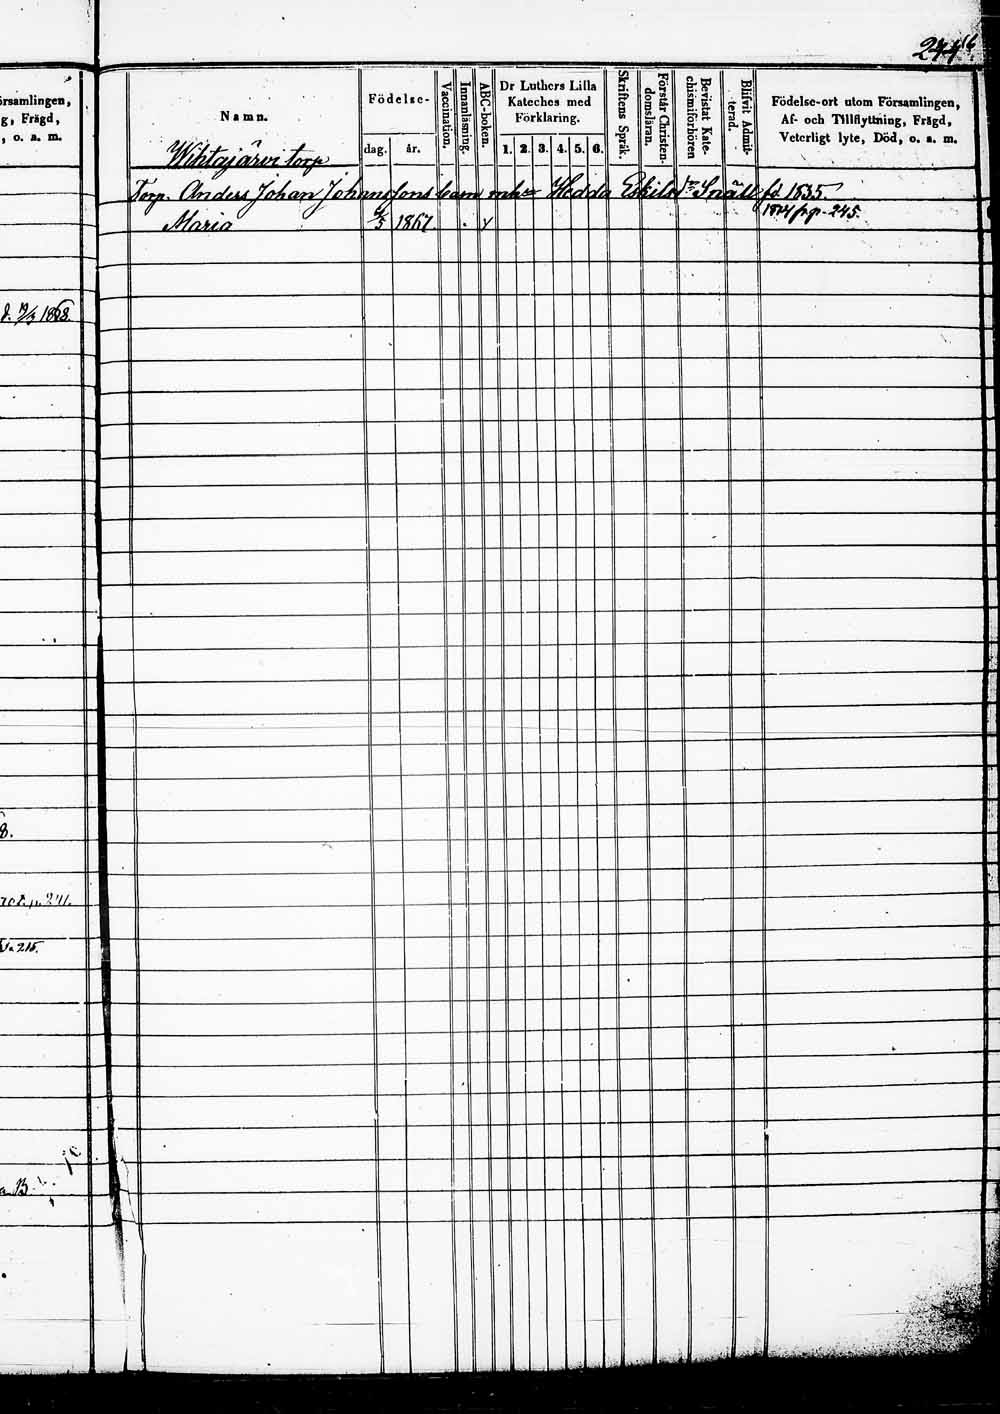 244
16
örsamlingen,
g, Frägd,
, o. a. m.
Namn.
Födelse-
dag. år.
Vaccination.
Innanläsning.
ABC-boken.
Dr Luthers Lilla
Kateches med
Förklaring.
1. 2. 3. 4. 5. 6.
Skriftens Språk.
Förstår Christen-
domsläran.
Bevistat Kate-
chismiförhören
Blifvit Admit-
terad.
Födelse-ort utom Församlingen,
Af- och Tillflyttning, Frägd,
Veterligt lyte, Död, o. a. m.
Wihtajärvi torp
Torp. Anders Johan Johansons barn m h. Hedda Eskilsd:r Snäll fd 1835.
Maria 1867. p. 245.
1868.
8.
p. 241.
215.